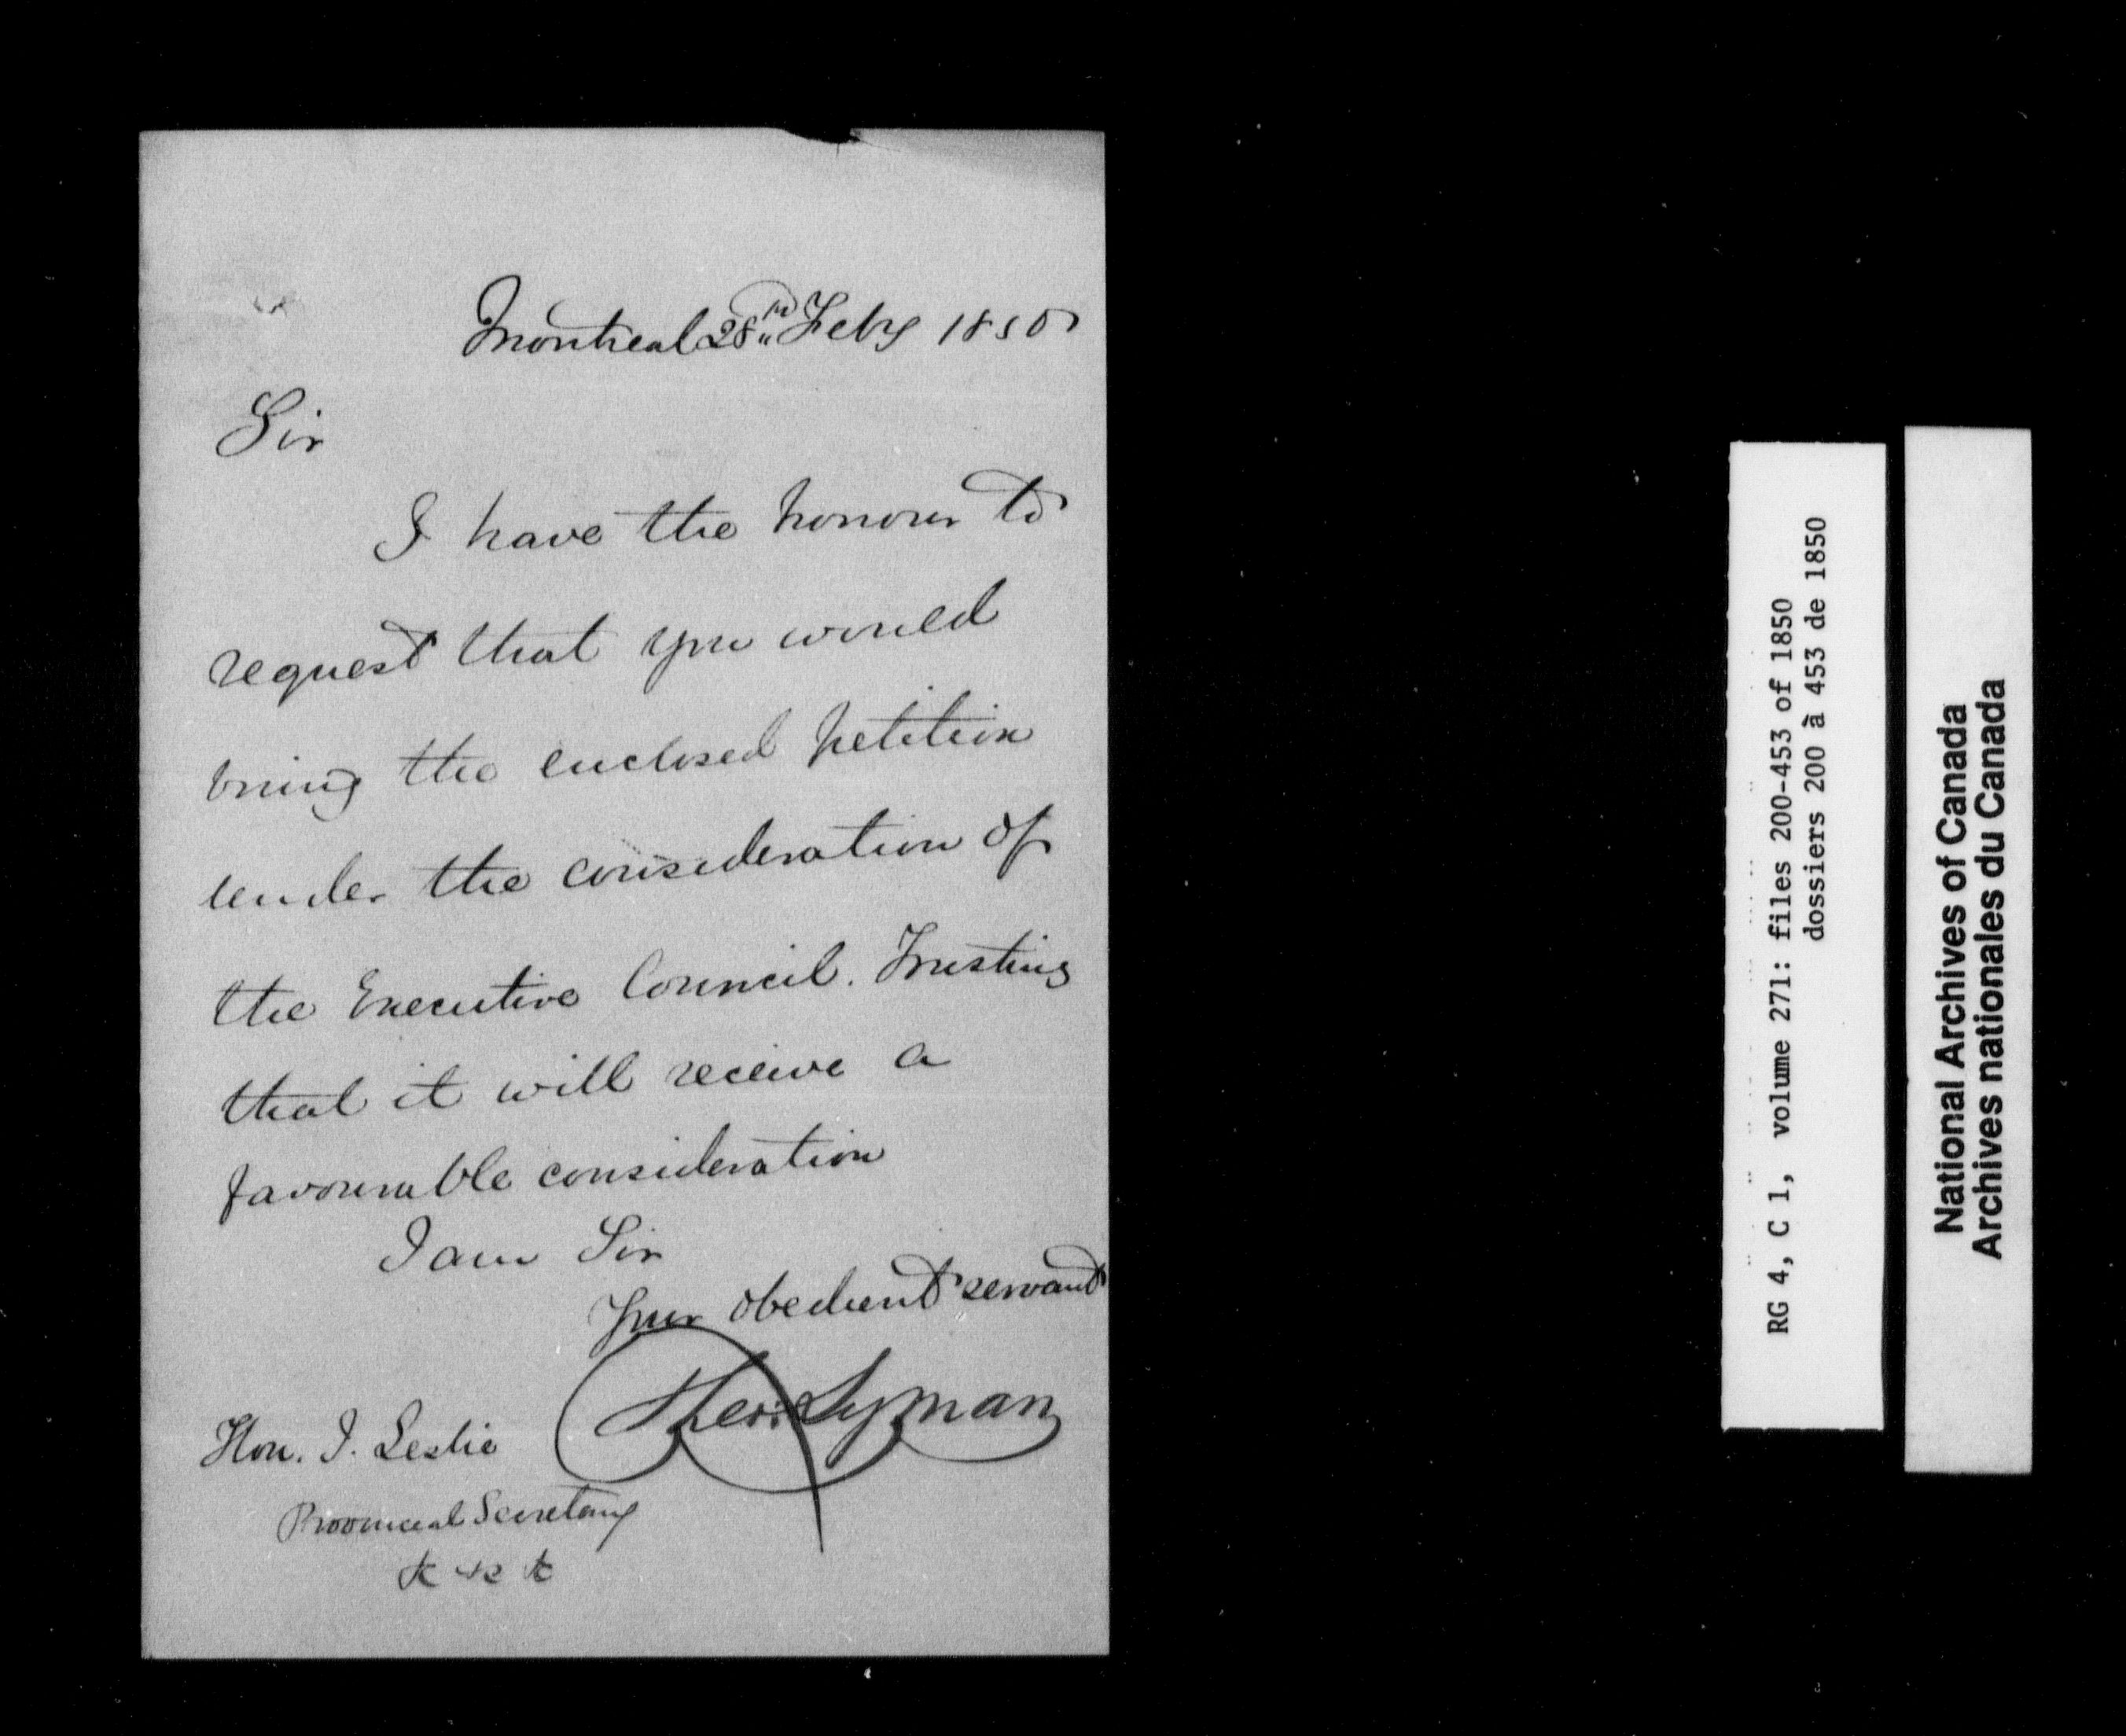 Montreal 28th Feby 1850
Sir
I have the honour to
request that you would
bring the enclosed petition
under the consideration of
the Executive Council. Trusting
that it will receive a
favourable consideration
I am Sir
Your obedient servant
Theo. Lyman
Hon. J. Leslie
Provincial Secretary
&c &c &c
RG 4, C 1, volume 271: files 200-453 of 1850
dossiers 200 à 453 de 1850
National Archives of Canada
Archives nationales du Canada